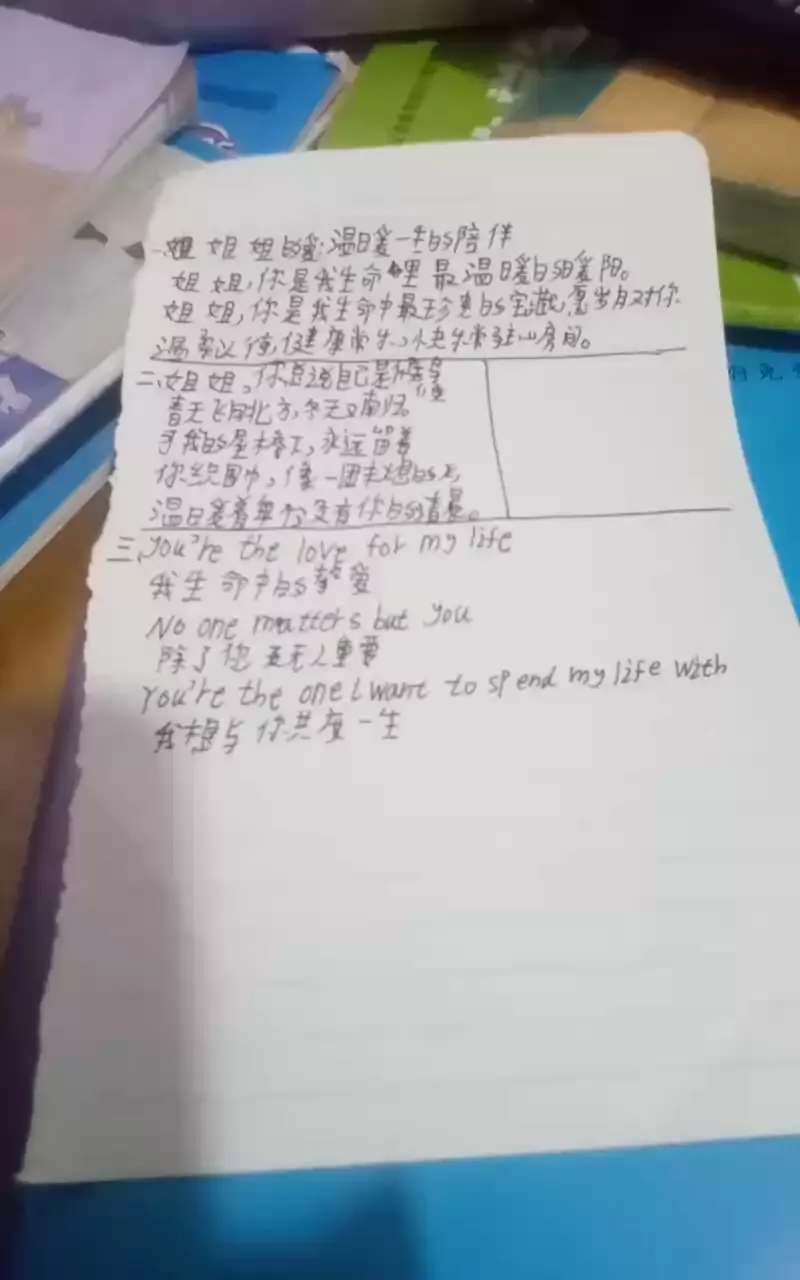 一、姐姐姐的爱:温暖一生的陪伴
姐姐,你是我生命里最温暖的暖阳。
姐姐,你是我生命中最珍贵的宝藏,愿岁月对你
温柔以待,健康常乐,快乐常驻心房间。
二、姐姐,你总说自己是候鸟
春天飞向北方,冬天又南归。
永远留着
你织围巾,像一团未熄的火,
温暖着每个没有你的清晨。
三、you're the love for my life
我生命中的挚爱
No one matters but you
除了你 无人重要
you're the one I want to spend my life with
我想与你共度一生